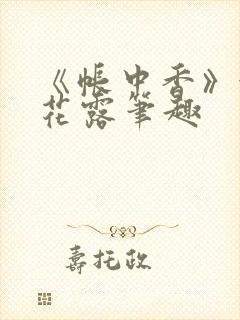 《帐中香》
花露笔趣
寿托政